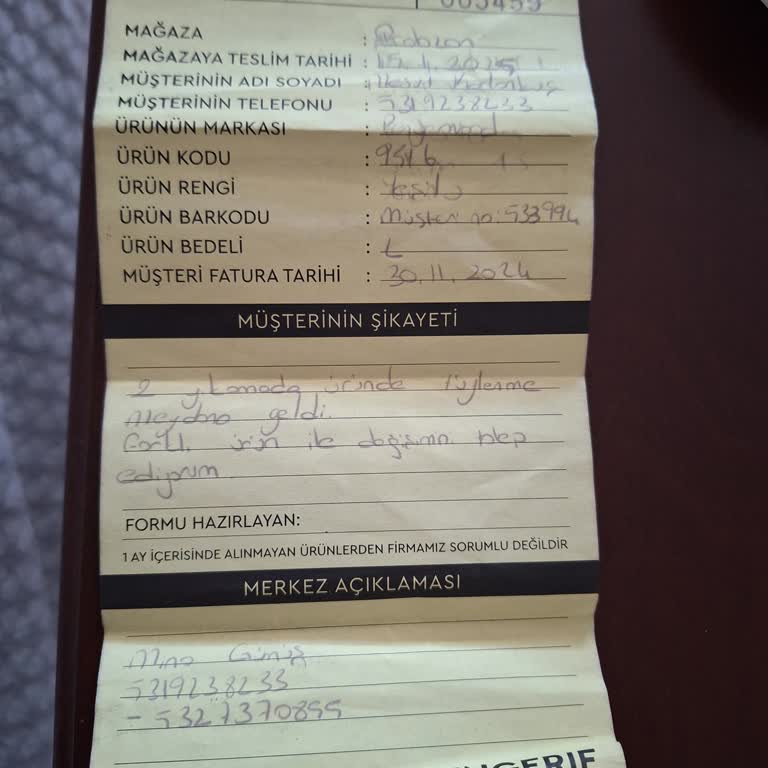 003459
MAĞAZA :
MAĞAZAYA TESLİM TARİHİ : 15.1.2025
MÜŞTERİNİN ADI SOYADI :
MÜŞTERİNİN TELEFONU : 5319238233
ÜRÜNÜN MARKASI :
ÜRÜN KODU : 9546
ÜRÜN RENGİ : Yeşil
ÜRÜN BARKODU : Müşteri no: 533994
ÜRÜN BEDELİ :
MÜŞTERİ FATURA TARİHİ : 30.11.2024
MÜŞTERİNİN ŞİKAYETİ
2 yıkamada üründe tüylenme
meydana geldi.
Farklı ürün ile değişimi talep
ediyorum
FORMU HAZIRLAYAN:
1 AY İÇERİSİNDE ALINMAYAN ÜRÜNLERDEN FİRMAMIZ SORUMLU DEĞİLDİR
MERKEZ AÇIKLAMASI
5319238233
- 5327370899